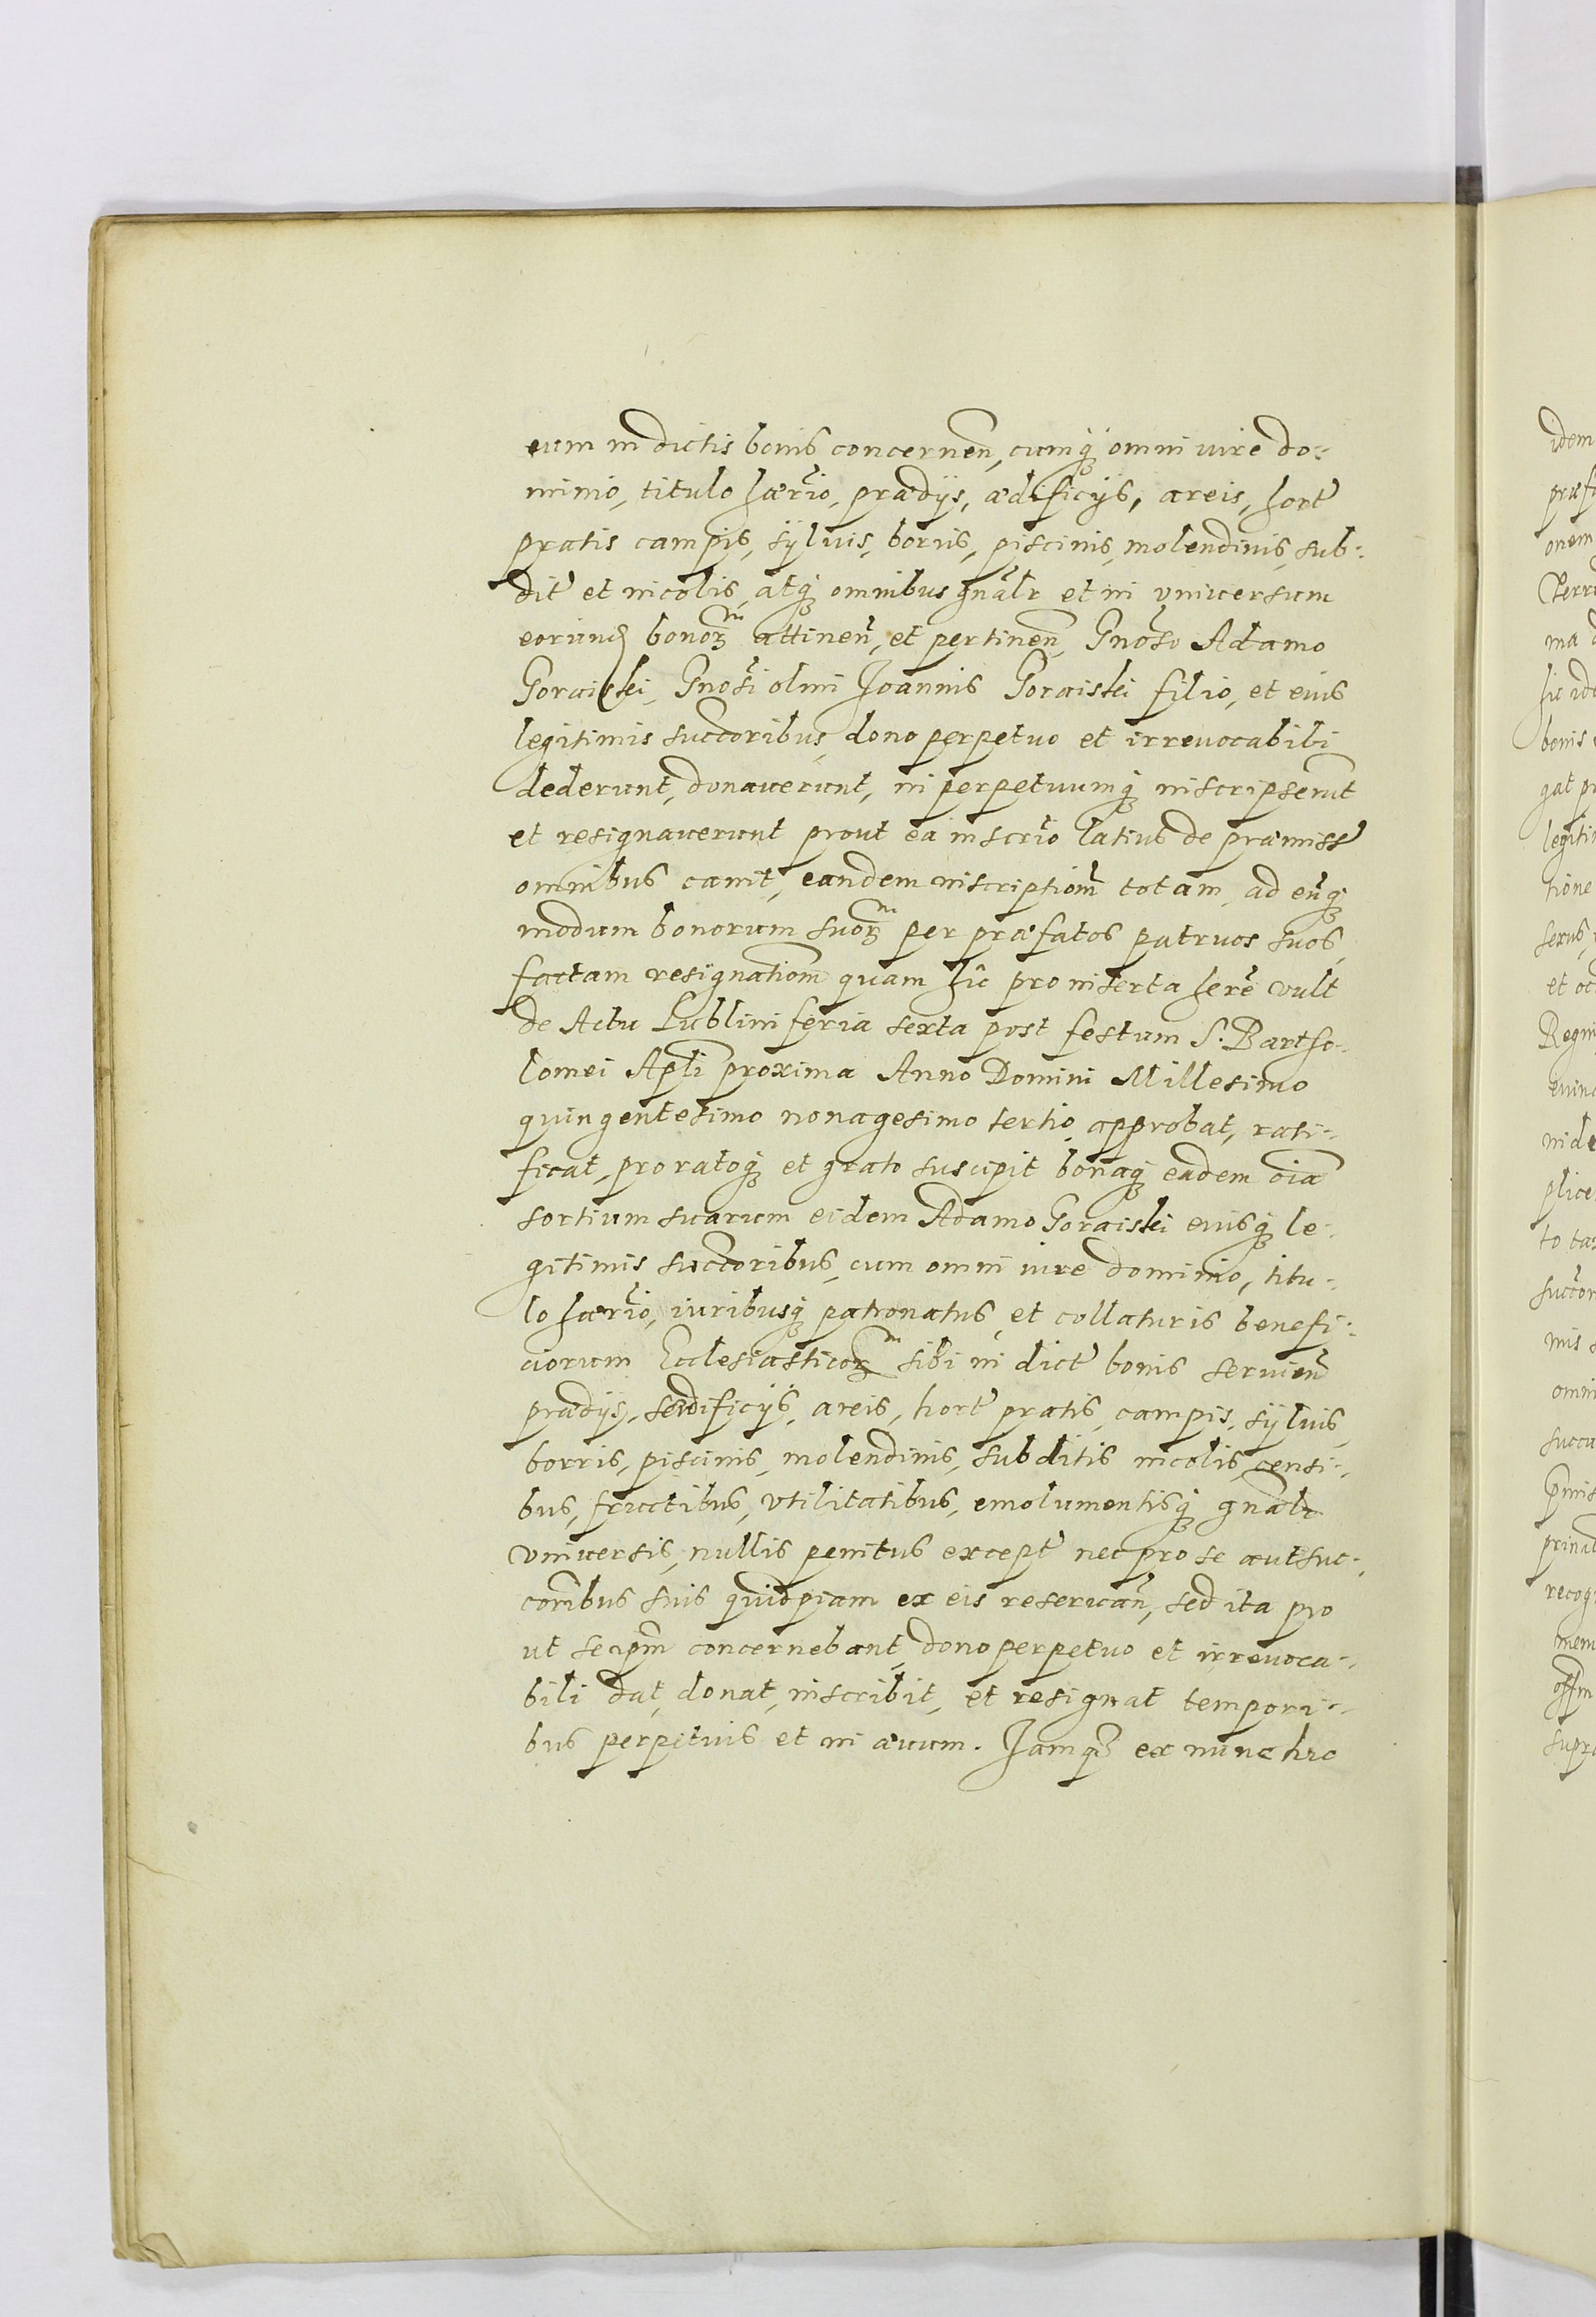 eum in dictis bonis concernen̄, cumq́ȝ omni iure do-
minio, titulo hærīo, prædijs, ædificijs, areis, hort̄
pratis campis, sÿluis, borris, piscinis, molendinis, sub-
dit̄ et incolis, atq́ȝ omnibus gn̄alr et in vniuersum
eorund bonorꝫ attinen̄, et pertinen̄, Gn̄oso Adamo
Goraiski, Gn̄osi olim Joannis Goraiski filio, et eius
legitimis succōribus, dono perpetuo et irreuocabili
dederunt, donauerunt, in perpetuumq́ȝ inscripserūt
et resignauerunt prout ea inscrīo latius de præmiss̄
omnibus canit, eandem inscriptiom̄ totam, ad eūq́ȝ
modum bonorum suorꝫ per præfatos patruos suos,
factam resignatiom̄ quam hîc pro inserta herē vult
de Actu Lublini feria sexta post festum S. Bartho-
lomei Apl̄i proxima Anno Domini Millesimo
quingentesimo nonagesimo tertio, approbat, rati-
ficat, pro ratoq́ȝ et grato suscipit bonaq́ȝ eadem oīa
sortium suarum eidem Adamo Goraiski eiusq́ȝ le-
gitimis succōribus, cum omni iure dominio, titu-
lo hærīo, iuribusq́ȝ patronatus, et collaturis benefi-
ciorum Ecclesiasticorꝫ sibi in dict̄ bonis seruien̄
prædijs, ædificijs, areis, hort̄ pratis, campis, sÿluis,
borris, piscinis, molendinis, subditis incolis, censi-
bus, fructibus, vtilitatibus, emolumentisq́ȝ gn̄alr
vniuersis, nullis penitus except̄ nec pro se aut suc-
corībus suis quidpiam ex eis reseruan̄, sed ita pro
ut se ipm̄ concernebant, dono perpetuo et irreuoca-
bili dat, donat, inscribit, et resignat tempori-
bus perpetuis et in æuum. Jamq́ȝ ex nunc hic